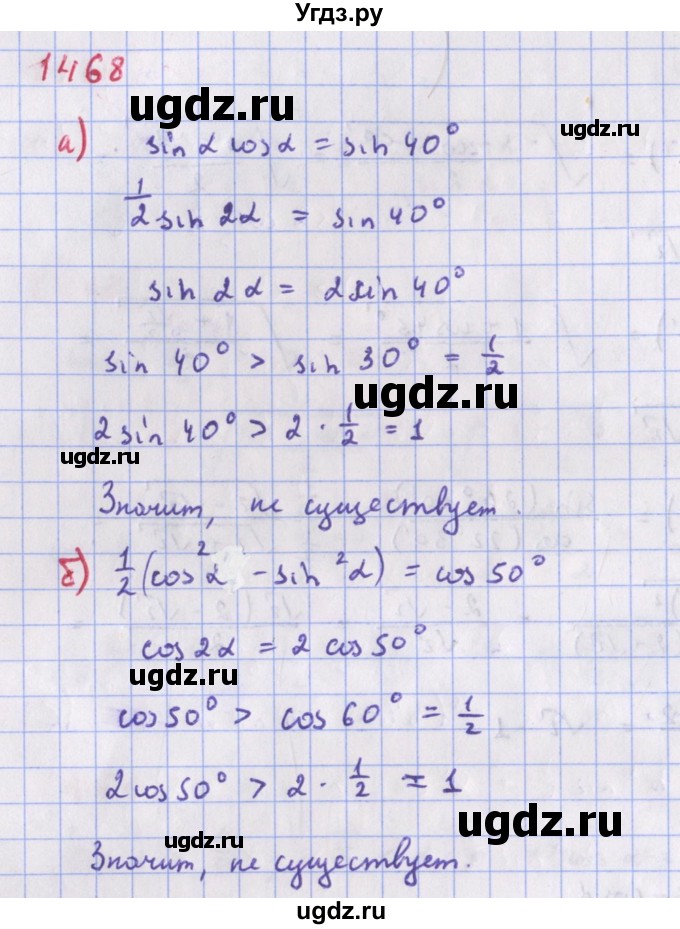 Угдз.ру
1468
ugdz.ru
а) sin α cos α = sin 40°
1/2 sin 2α = sin 40°
ugdz.ru
sin 2α = 2 sin 40°
sin 40° > sin 30° = 1/2
ugdz.ru
2 sin 40° > 2 · 1/2 = 1
ugdz.ru
Значит, не существует.
ugdz.ru
б) 1/2 (cos²α - sin²α) = cos 50°
cos 2α = 2 cos 50°
ugdz.ru
cos 50° > cos 60° = 1/2
2 cos 50° > 2 · 1/2 = 1
ugdz.ru
ugdz.ru
Значит, не существует.
ugdz.ru